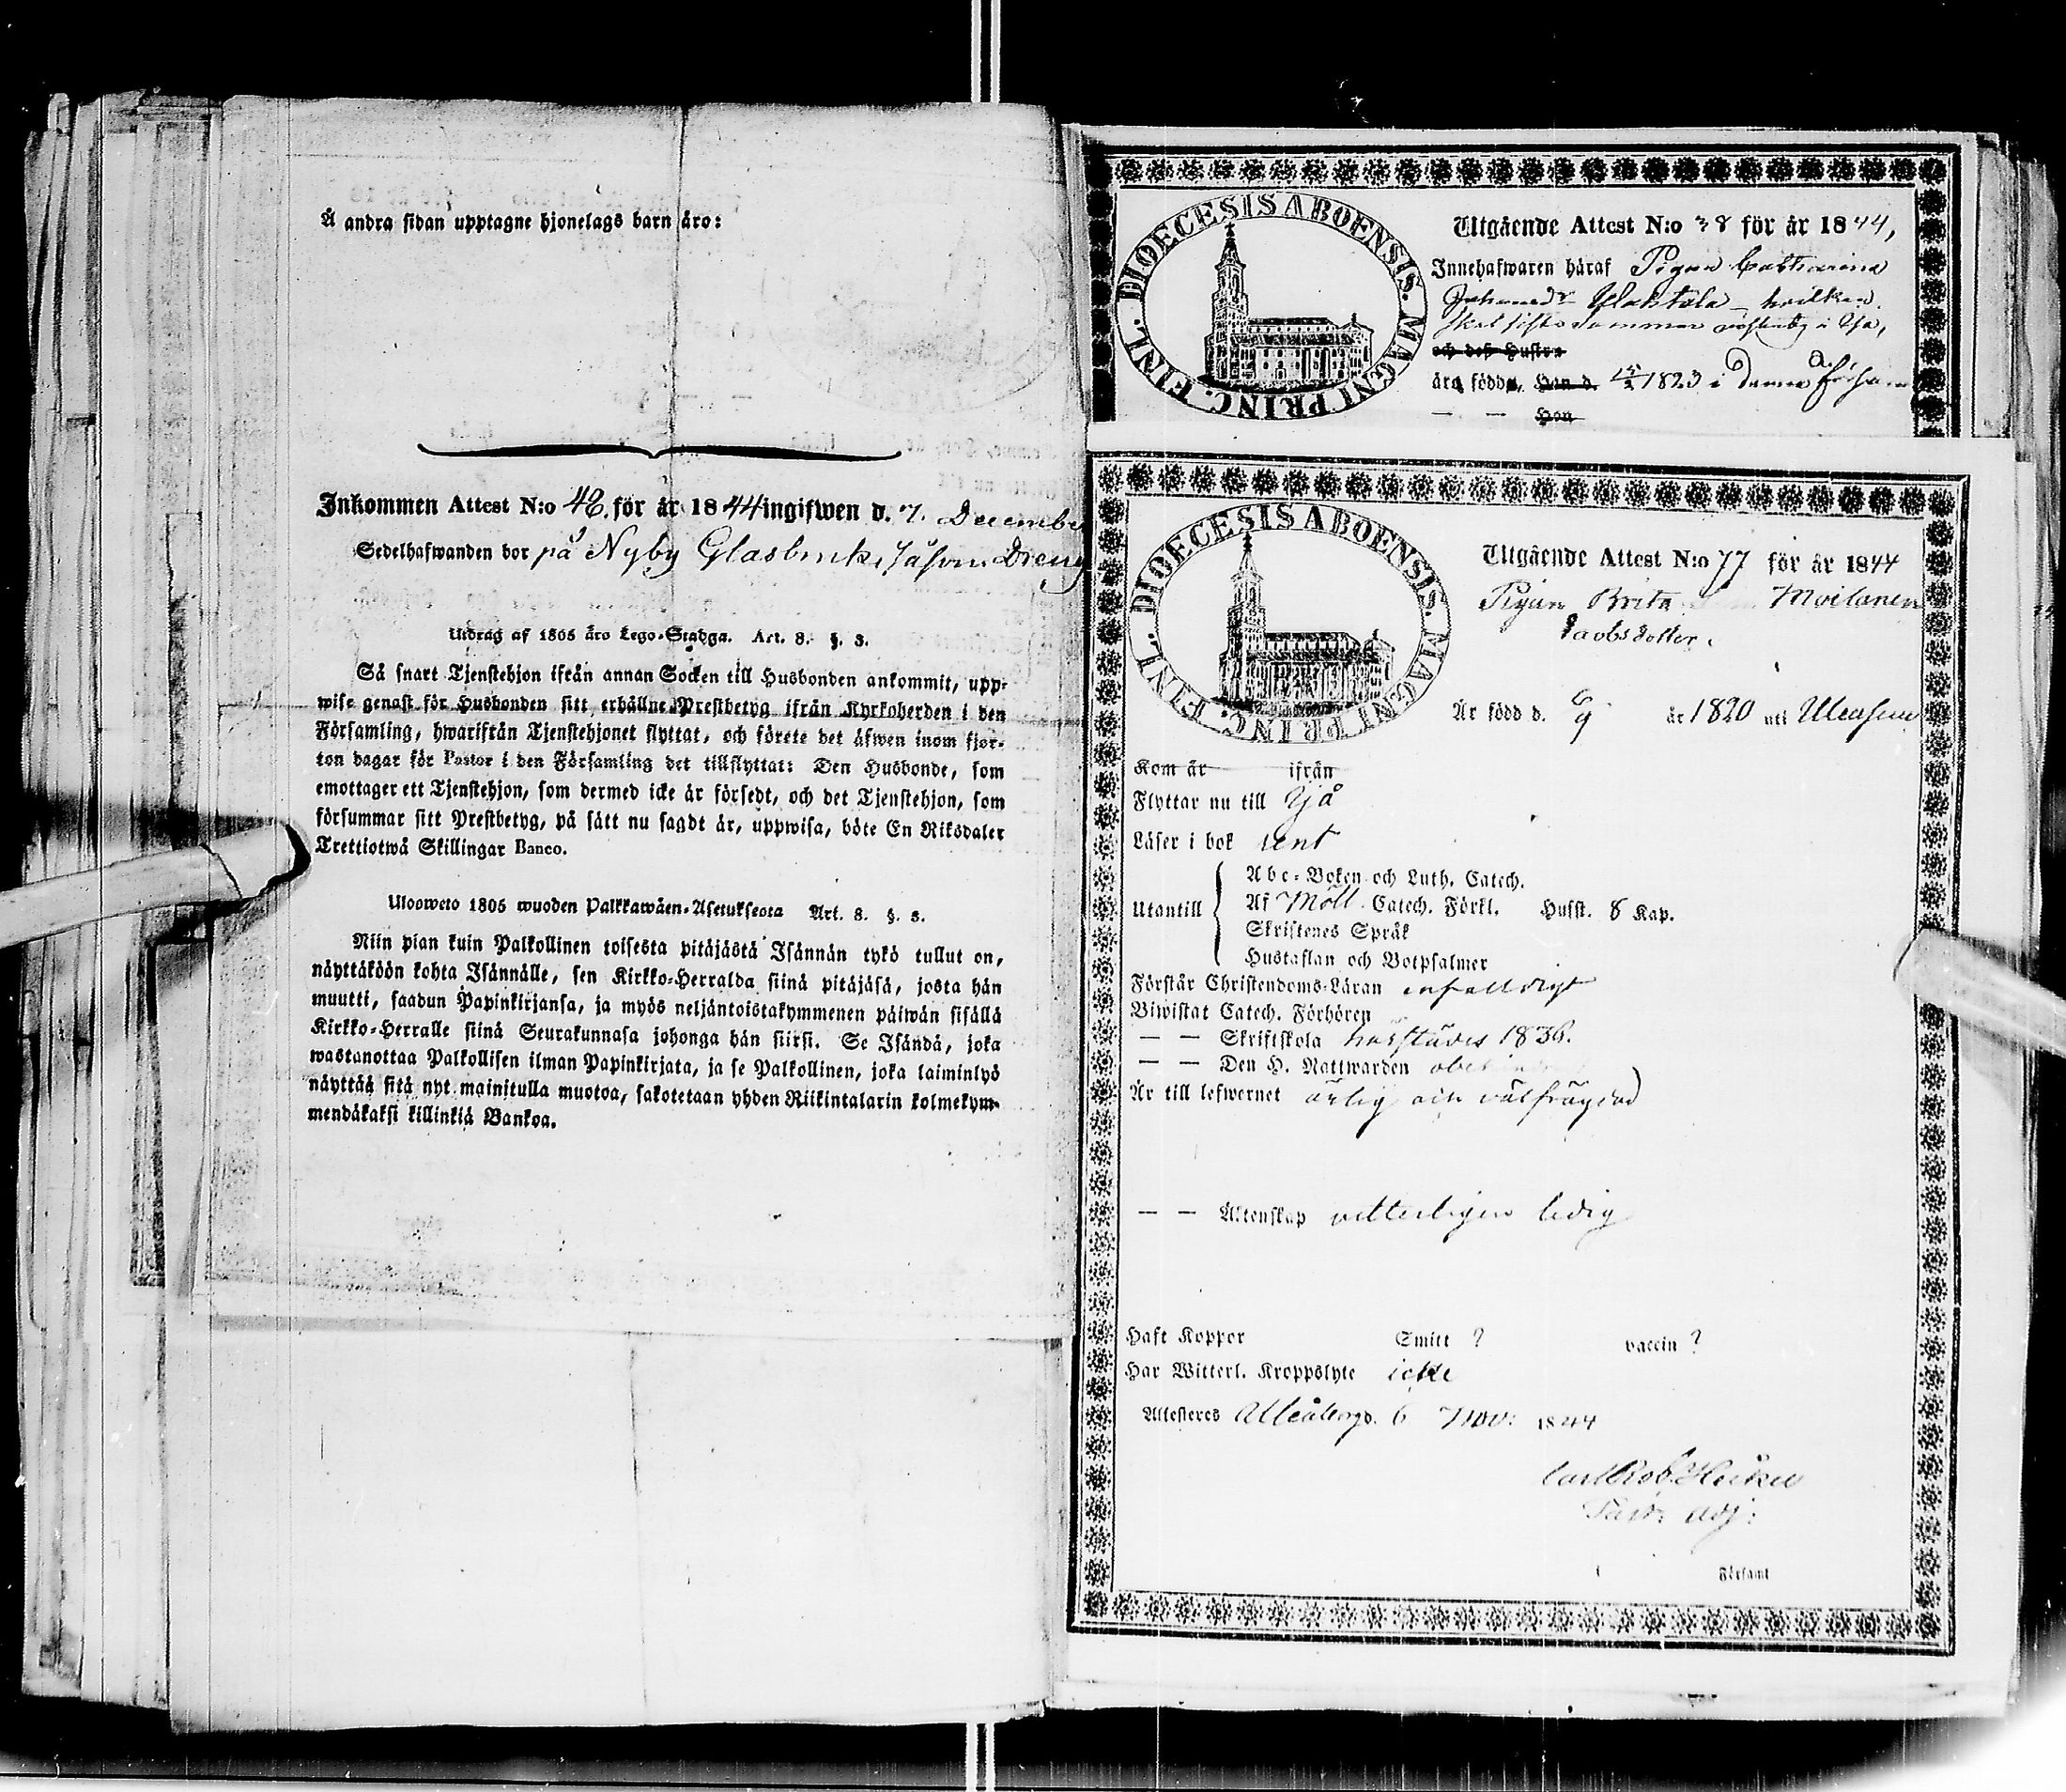 Å andra sidan upptagne hjonelags barn äro:
Inkommen Attest N:o 42. för år 1844 ingifwen d. 7. December
Sedelhafwanden bor på Nyby Glasbruk, såsom Dreng
Utdrag af 1805 års Lego-Stadga. Art. 8. §. 3.
Så snart Tjenstehjon ifrån annan Socken till Husbonden ankommit, upp-
wise genast för Husbonden sitt erhållne Prestbetyg ifrån Kyrkoherden i den
Församling, hwarifrån Tjenstehjonet flyttat, och förete det äfwen inom fjor-
ton dagar för Pastor i den Församling det tillflyttat: Den Husbonde, som
emottager ett Tjenstehjon, som dermed icke är försedt, och det Tjenstehjon, som
försummar sitt Prestbetyg, på sätt nu sagdt är, uppwisa, böte En Riksdaler
Trettiotwå Skillingar Banco.
Ulosweto 1805 wuoden Palkkawäen-Asetuksesta Art. 8. §. 3.
Niin pian kuin Palkollinen toisesta pitäjästä Isännän tykö tullut on,
näyttäköön kohta Isännälle, sen Kirkko-Herralda siinä pitäjäsä, josta hän
muutti, saadun Papinkirjansa, ja myös neljäntoistakymmenen päiwän sisällä
Kirkko-Herralle siinä Seurakunnasa johonga hän siirsi. Se Isändä, joka
wastanottaa Palkollisen ilman Papinkirjata, ja se Palkollinen, joka laiminlyö
näyttää sitä nyt mainitulla muotoa, sakotetaan yhden Riikintalarin kolmekym-
mendäkaksi killinkiä Bankoa.
DIOECESIS ABOENSIS. MAGNI PRINC. FINL.
Utgående Attest N:o 38 för år 1844,
Innehafwaren häraf Pigan Catharina
hvilken
och dess Hustru
äro födde, Han d. 1823 i denna
— — Hon
DIOECESIS ABOENSIS. MAGNI PRINC. FINL.
Utgående Attest N:o 77 för år 1844
Pigan Brita Moilanen
Jacobsdotter.
Är född d. 6/9 år 1820 uti
Kom år ifrån
Flyttar nu till Yjå
Läser i bok rent
Utantill
Abc-Boken och Luth. Catech.
Af Möll. Catech. Förkl. Husst. 8 Kap.
Skriftenes Språk
Hustaflan och Botpsalmer
Förstår Christendoms-Läran enfalldigt
Biwistat Catech. Förhören
— — Skriftskola härstädes 1836.
— — Den H. Nattwarden
Är till lefwernet ärlig och välfrägdad
— — Äktenskap vitterligen ledig
Haft Koppor Smitt ? vaccin ?
Har Witterl. Kroppslyte icke
Attesteres Uleåborg d. 6 Nov: 1844
Carl Rob. Heikel
Past: Adj:
Församl